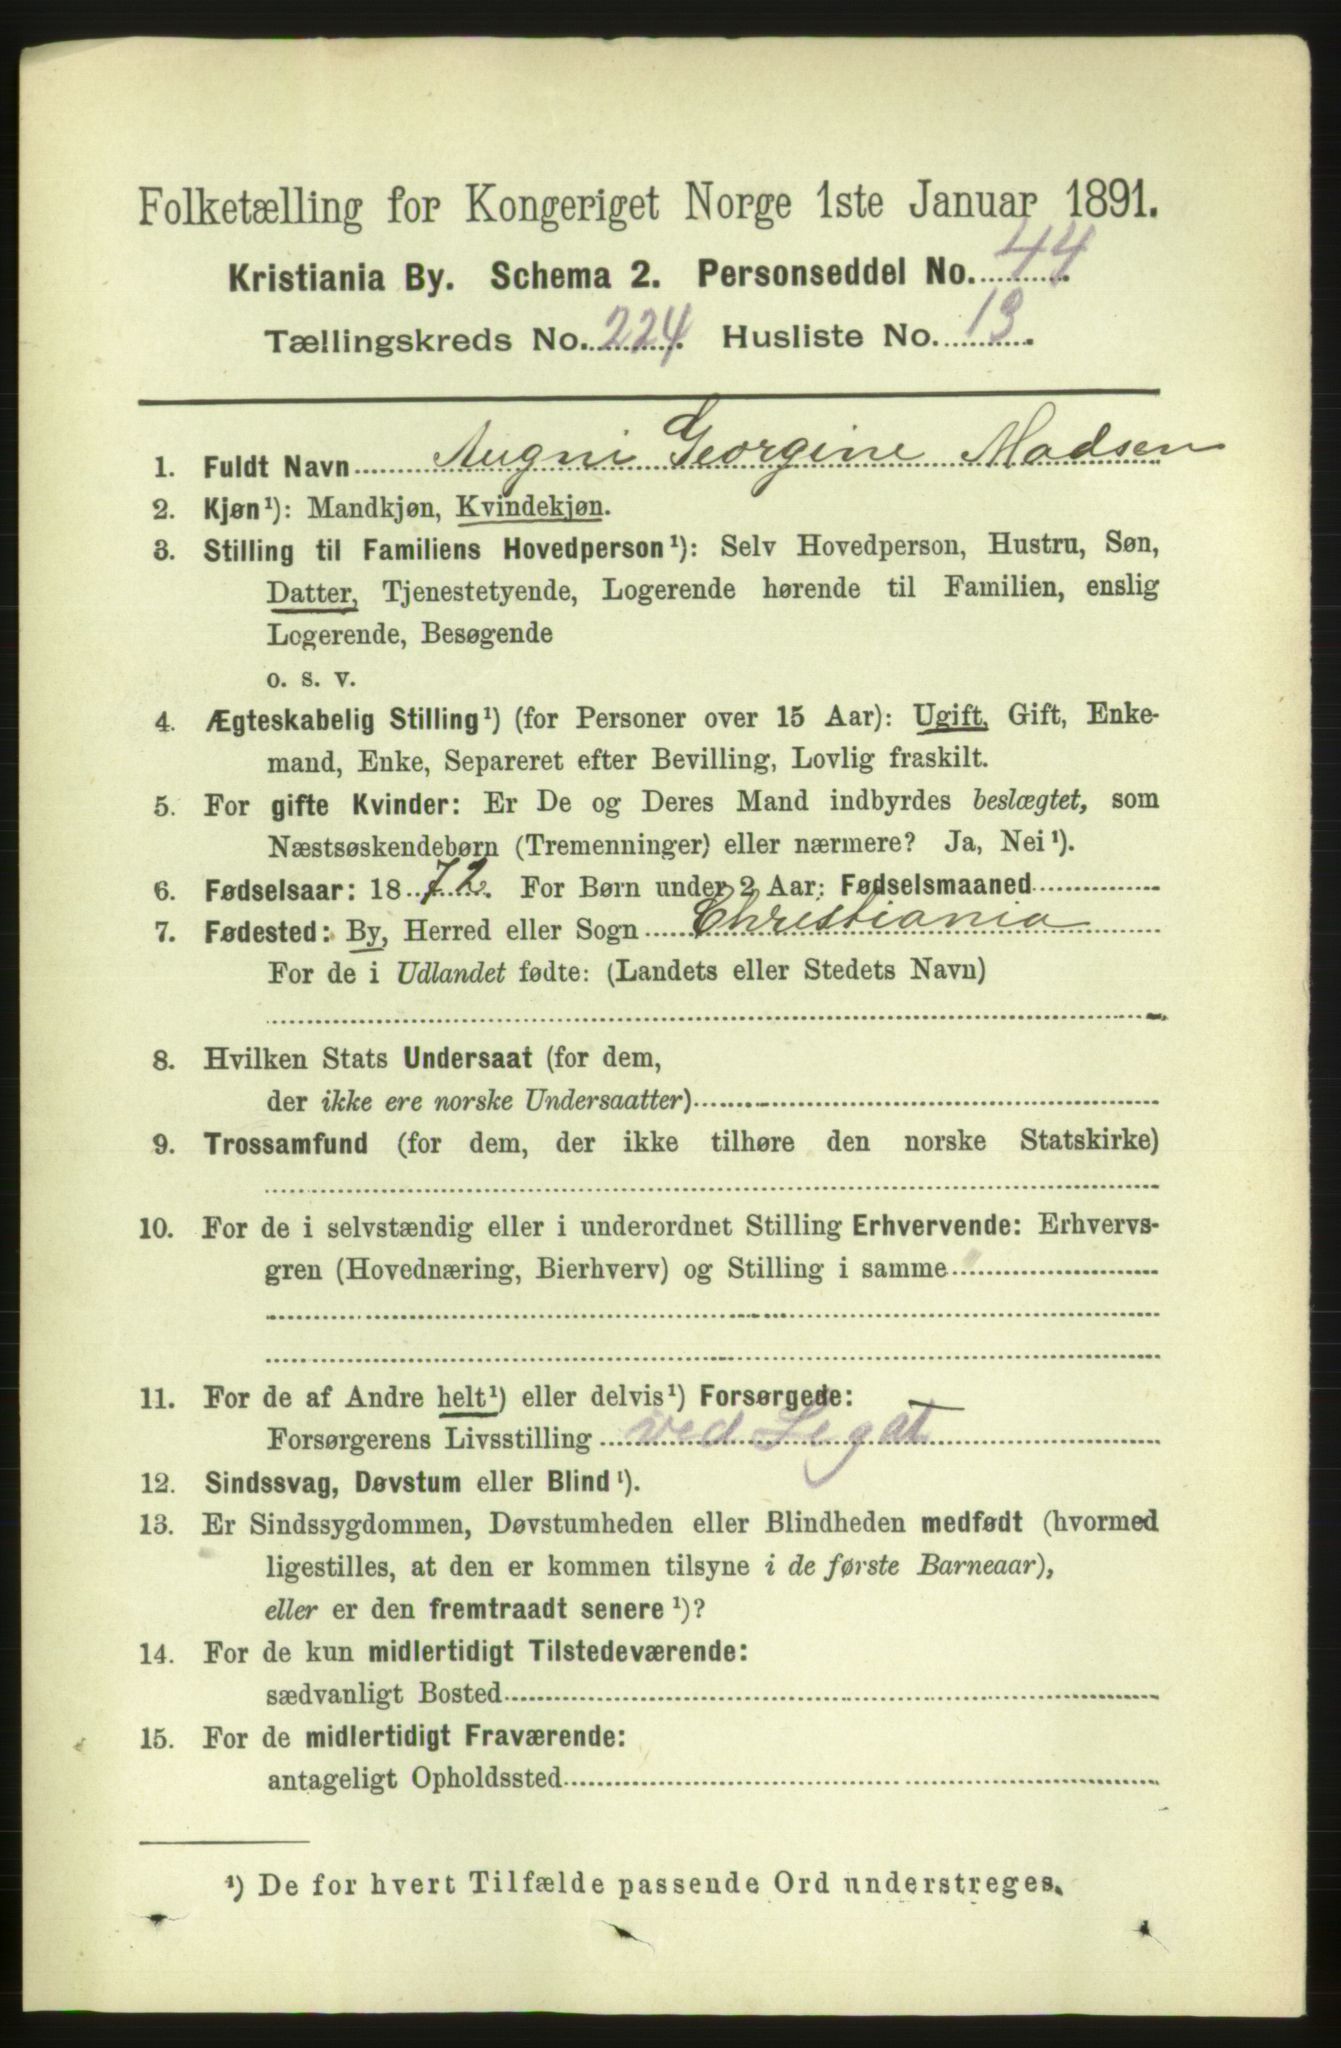 Folketælling for Kongeriget Norge 1ste Januar 1891.
Kristiania By. Schema 2. Personseddel No. 44
Tællingskreds No. 224. Husliste No. 13.
1. Fuldt Navn Augni Georgine Madsen
2. Kjøn¹): Mandkjøn, Kvindekjøn.
3. Stilling til Familiens Hovedperson¹): Selv Hovedperson, Hustru, Søn,
Datter, Tjenestetyende, Logerende hørende til Familien, enslig
Logerende, Besøgende
o. s. v.
4. Ægteskabelig Stilling¹) (for Personer over 15 Aar): Ugift, Gift, Enke-
mand, Enke, Separeret efter Bevilling, Lovlig fraskilt.
5. For gifte Kvinder: Er De og Deres Mand indbyrdes beslægtet, som
Næstsøskendebørn (Tremenninger) eller nærmere? Ja, Nei¹).
6. Fødselsaar: 1872. For Børn under 2 Aar: Fødselsmaaned
7. Fødested: By, Herred eller Sogn Christiania
For de i Udlandet fødte: (Landets eller Stedets Navn)
8. Hvilken Stats Undersaat (for dem,
der ikke ere norske Undersaatter)
9. Trossamfund (for dem, der ikke tilhøre den norske Statskirke)
10. For de i selvstændig eller i underordnet Stilling Erhvervende: Erhvervs-
gren (Hovednæring, Bierhverv) og Stilling i samme
11. For de af Andre helt¹) eller delvis¹) Forsørgede:
Forsørgerens Livsstilling ved Legat
12. Sindssvag, Døvstum eller Blind¹).
13. Er Sindssygdommen, Døvstumheden eller Blindheden medfødt (hvormed
ligestilles, at den er kommen tilsyne i de første Barneaar),
eller er den fremtraadt senere¹)?
14. For de kun midlertidigt Tilstedeværende:
sædvanligt Bosted
15. For de midlertidigt Fraværende:
antageligt Opholdssted
¹) De for hvert Tilfælde passende Ord understreges.